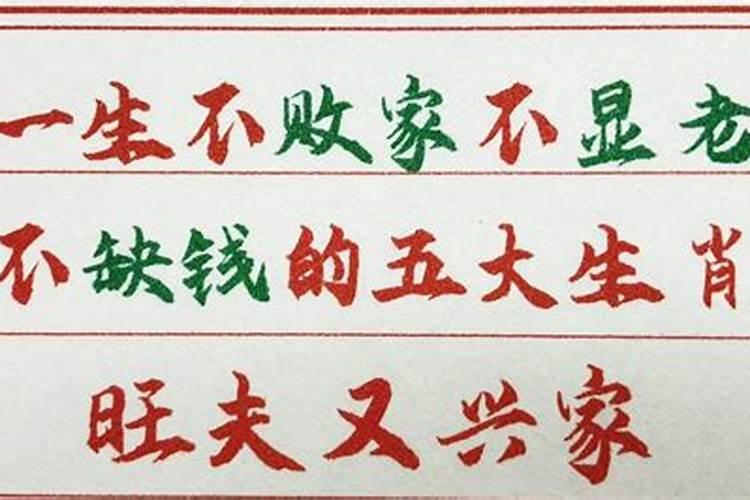 一生不败家不显老
不缺钱的五大生肖
旺夫又兴家